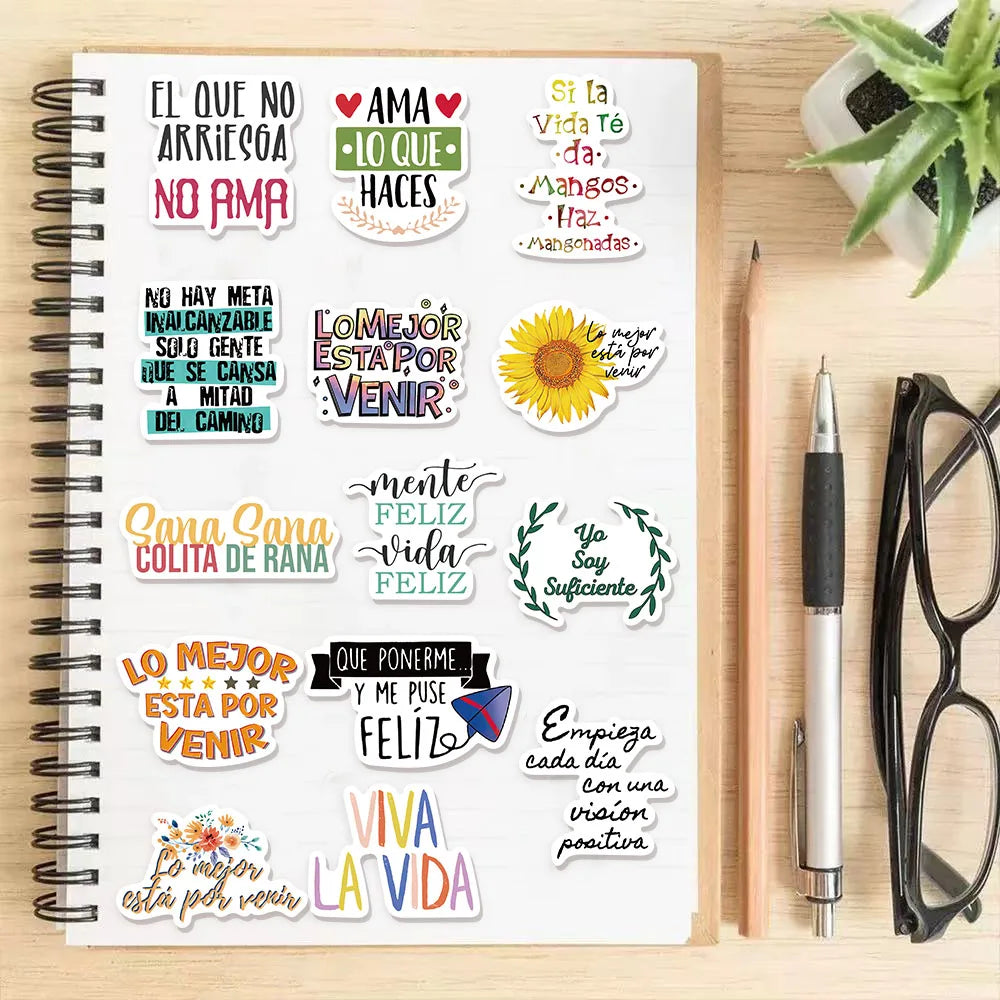 EL QUE NO
ARRIESGA
NO AMA
AMA
LO QUE
HACES
Si la
Vida Té
·da·
·Mangos·
·Haz·
·Mangonadas·
NO HAY META
INALCANZABLE
SOLO GENTE
QUE SE CANSA
A MITAD
DEL CAMINO
LO MEJOR
ESTA POR
VENIR
Lo mejor
está por
venir
Sana Sana
COLITA DE RANA
mente
FELIZ
vida
FELIZ
Yo
Soy
Suficiente
LO MEJOR
ESTA POR
VENIR
QUE PONERME...
Y ME PUSE
FELÍZ
Empieza
cada día
con una
visión
positiva
Lo mejor
está por venir
VIVA
LA VIDA